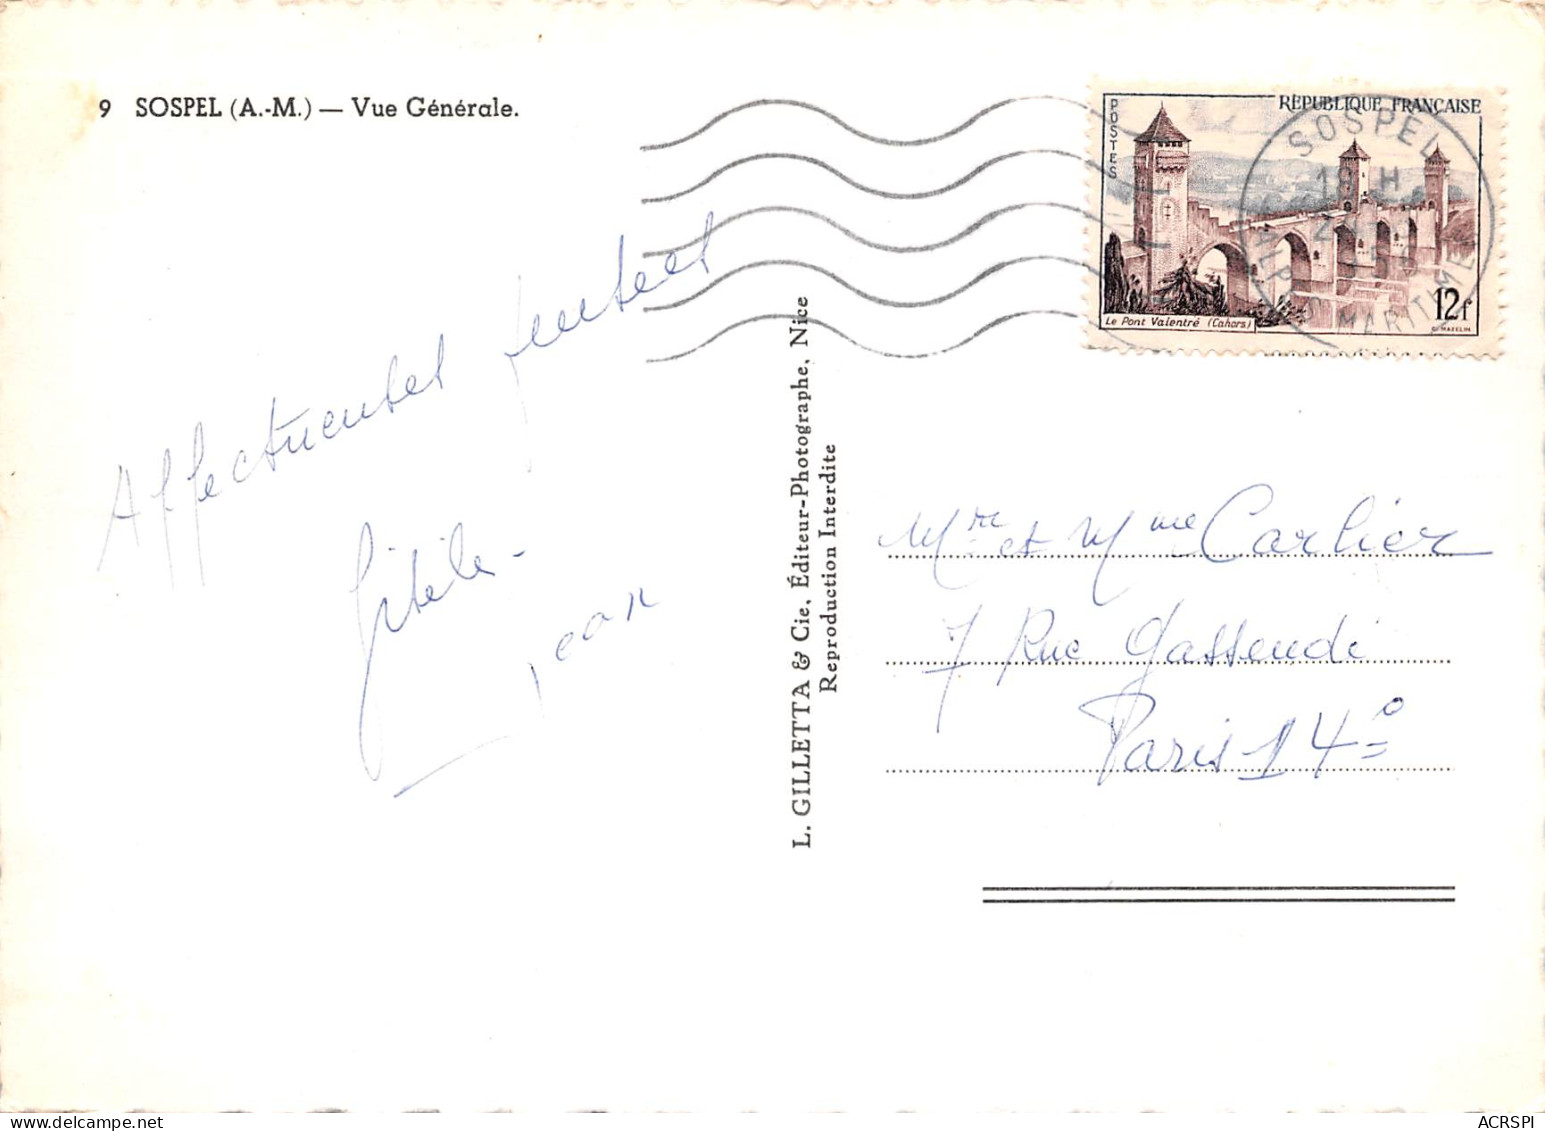 9 SOSPEL (A.-M.) — Vue Générale.
Affectueuses pensées
Jean
L. GILLETTA & Cie, Éditeur-Photographe, Nice
Reproduction Interdite
RÉPUBLIQUE FRANÇAISE
POSTES
Le Pont Valentré (Cahors)
12f
C. MAZELIN
SOSPEL
19 H
MARITIME
Mr et Mme Carlier
7 Rue Gassendi
Paris 14e
ACRSPI